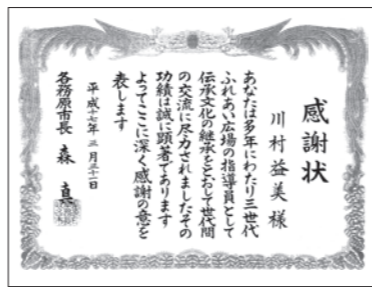 感謝状
川村益美様
あなたは多年にわたり三世代
ふれあい広場の指導員として
伝承文化の継承をとおして世代間
の交流に尽力されましたその
功績は誠に顕著であります
よってここに深く感謝の意を
表します
平成十七年三月三十一日
各務原市長 森 真